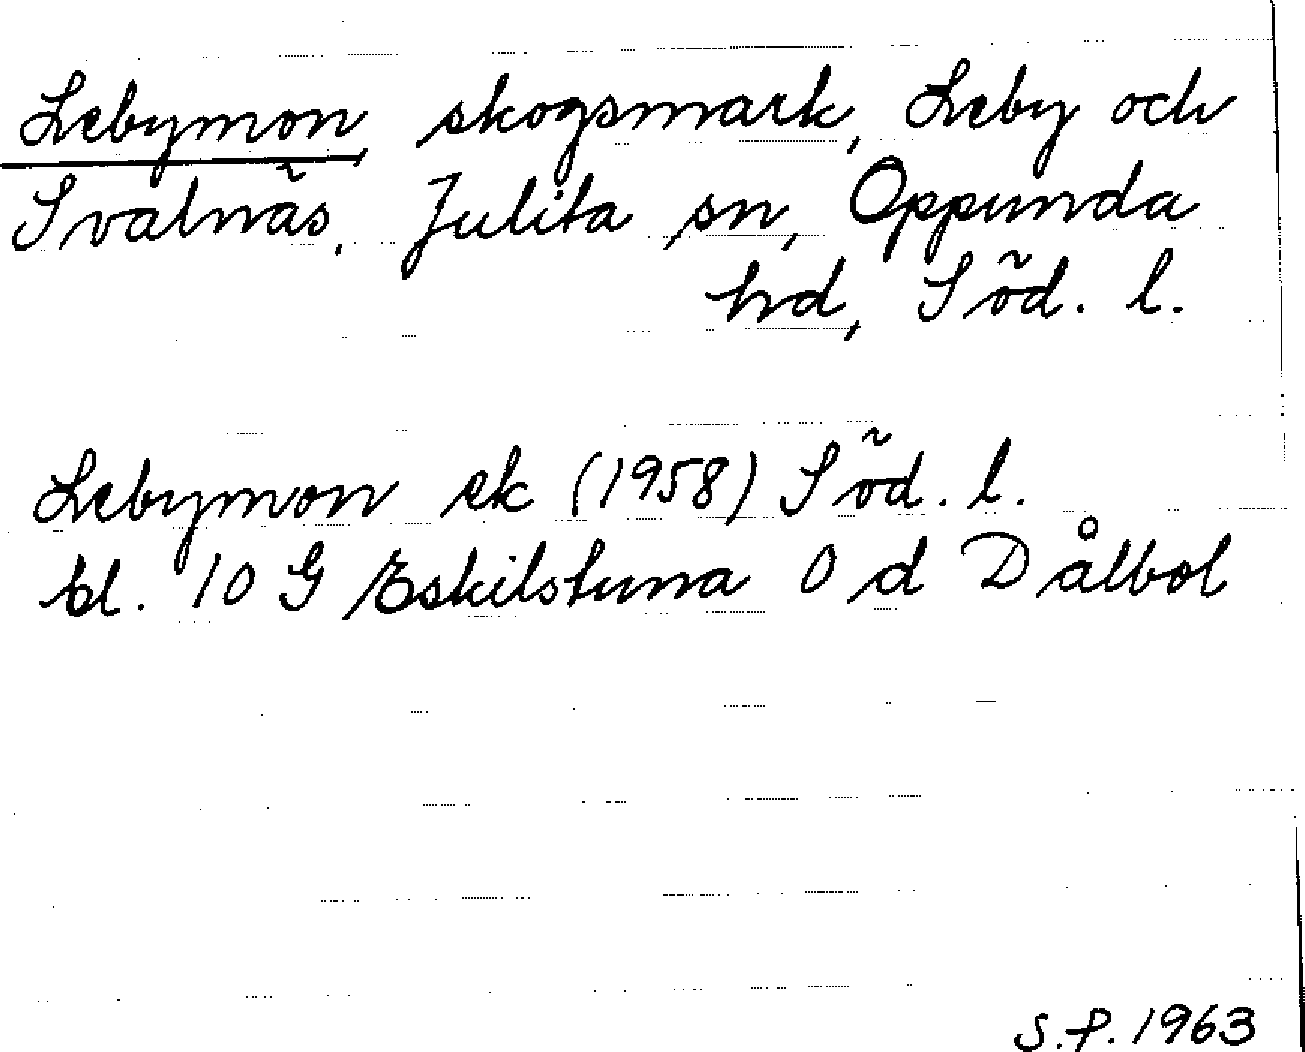 Lebymon, skogsmark, Leby och
Svalnäs. Julita sn, Oppunda
hd, Söd. l.
Lebymon ek (1958) Söd. l.
bl. 10 G Eskilstuna 0 d Dålbol
S.P. 1963